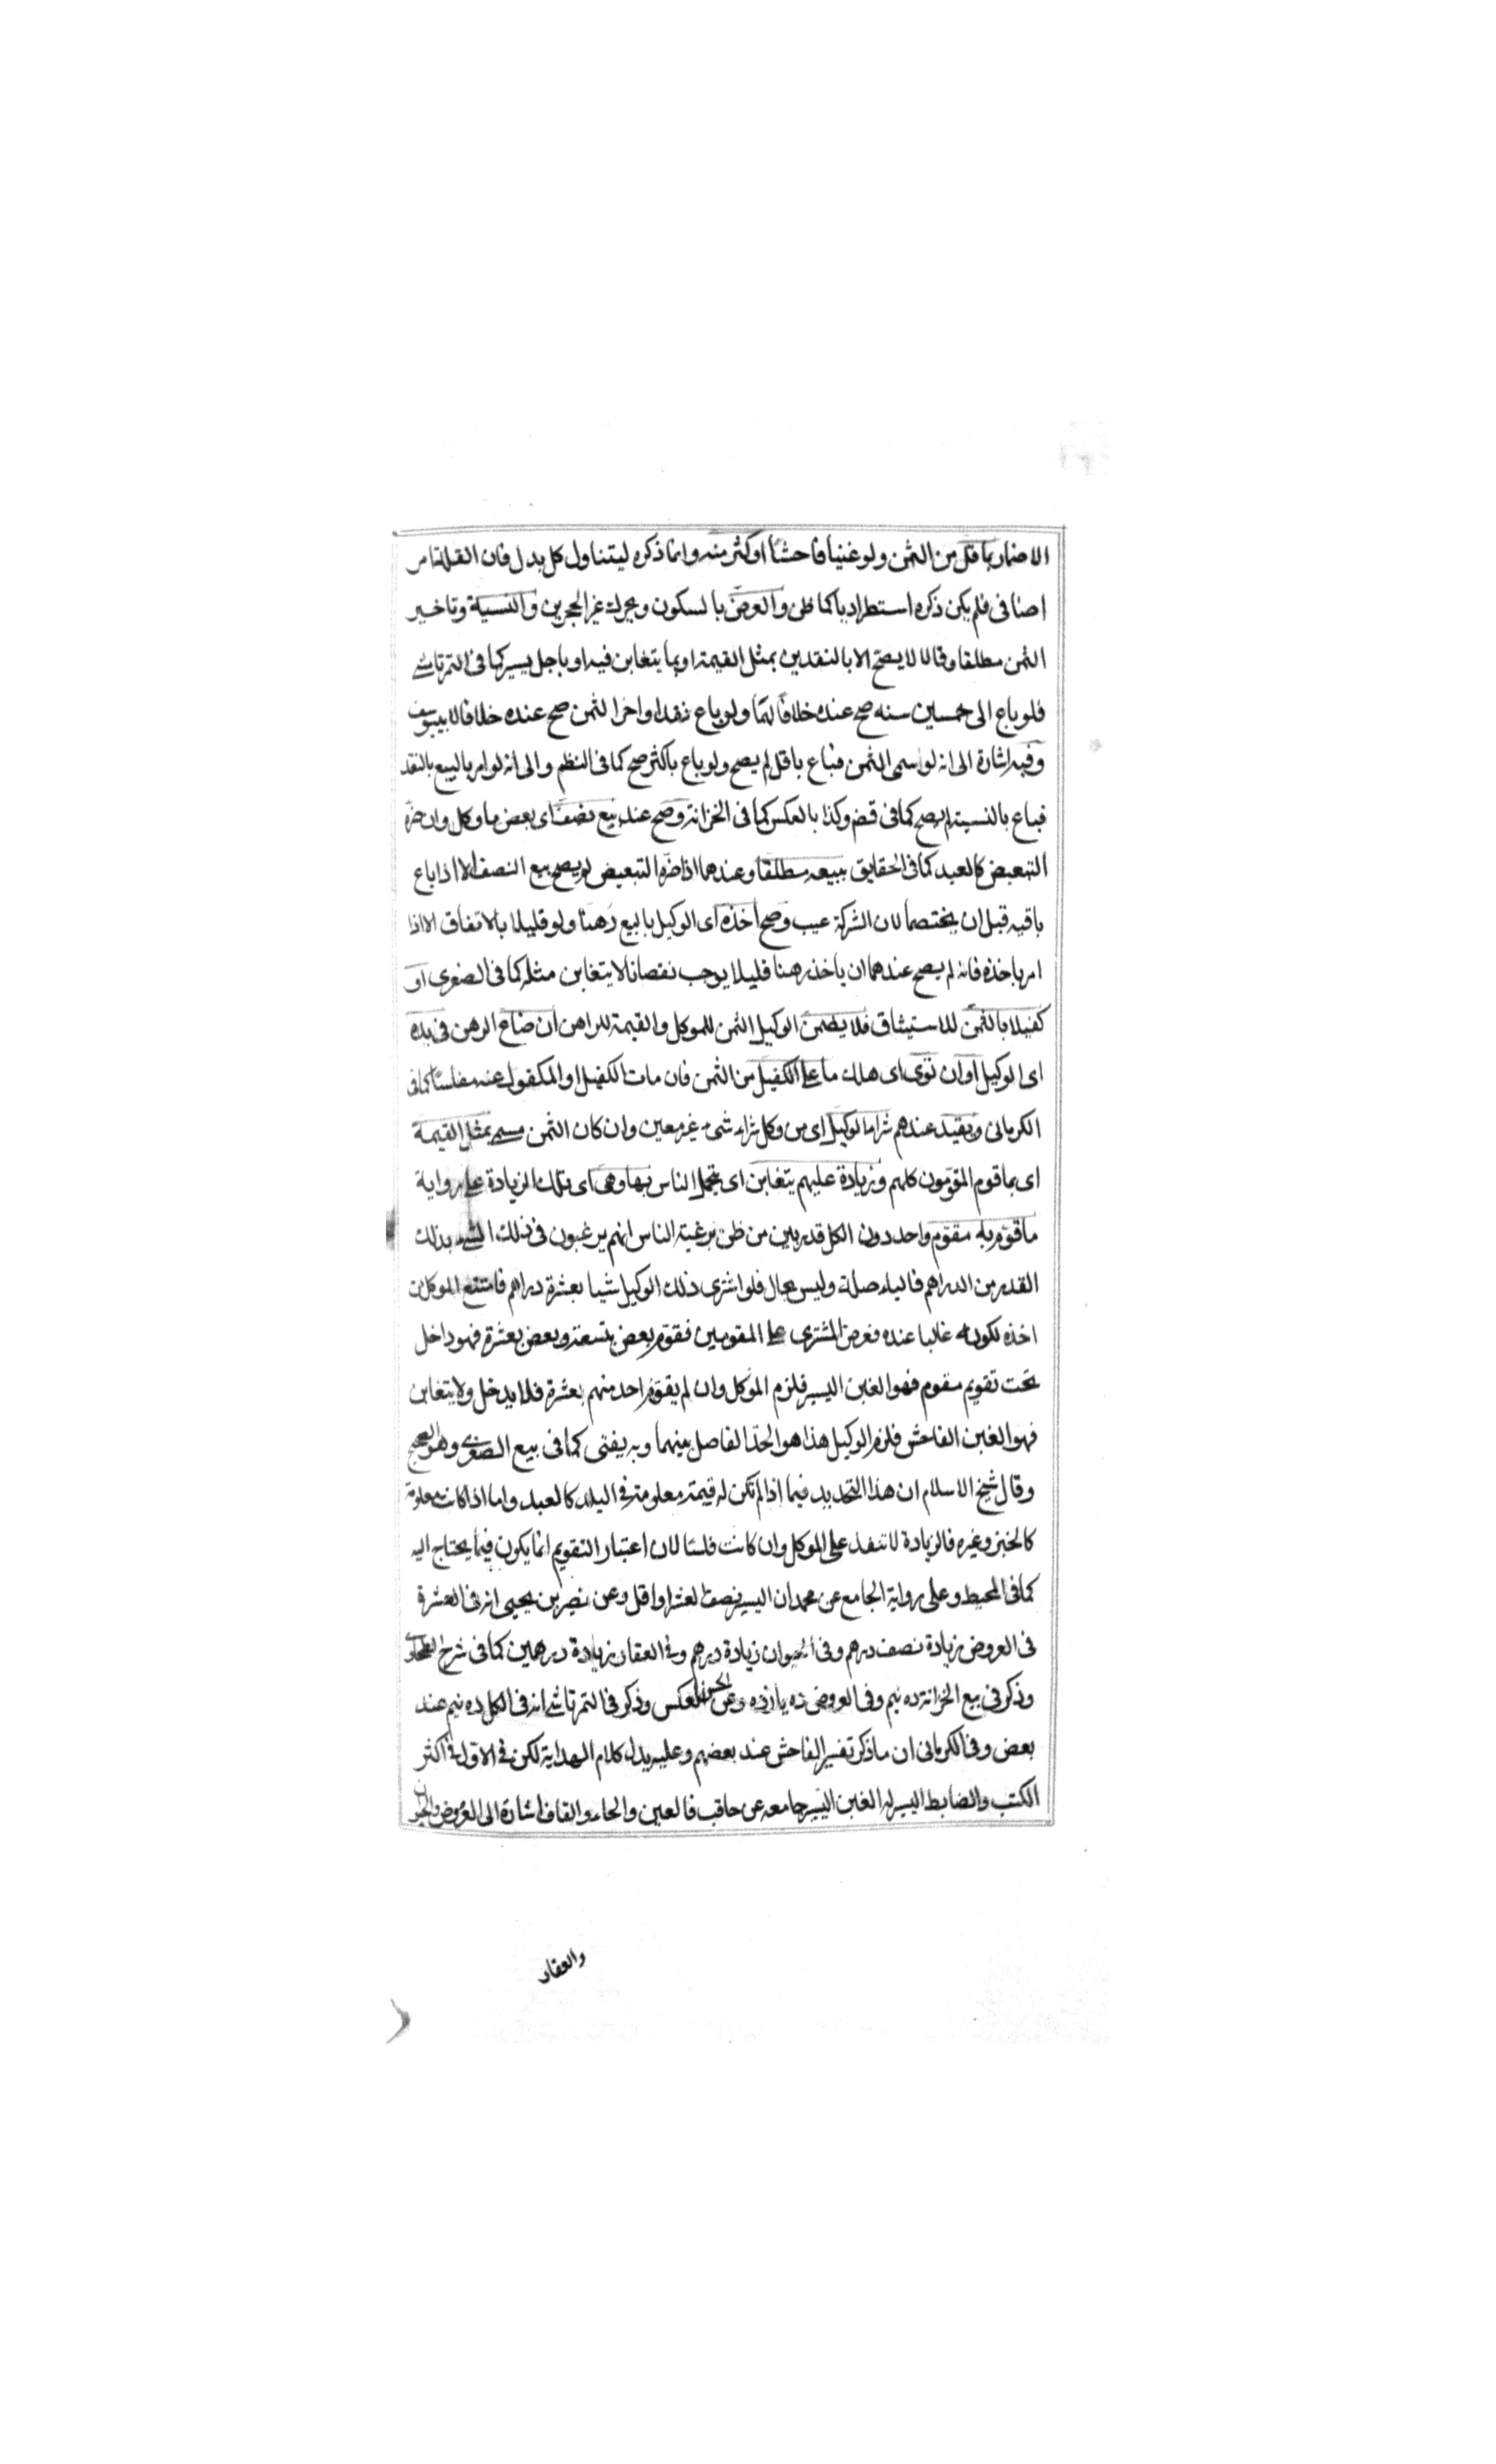 الاضمار بما قل من الثمن ولو غنيا فاحشا او كثر منه وانما ذكره ليتناول كل بدل فان القلة امر
اضافى فلم يكن ذكره استطراديا كما ظن والعرض بالسكون ويحرك غير الحجرين والنسية وتاخير
الثمن مطلقا وقالا لا يصح الا بالنقدين بمثل القيمة او بما يتغابن فيه او باجل يسير كما فى التمرتاشى
فلو باع الى خمسين سنه صح عنده خلافا لهما ولو باع نقدا واخر الثمن صح عنده خلافا لابى يوسف
وفيه اشارة الى انه لو سمى الثمن فباع باقل لم يصح ولو باع باكثر صح كما فى النظم والى انه لو امر بالبيع بالنقد
فباع بالنسية لم يصح كما فى قضـ وكذا بالعكس كما فى الخزانة وصح عنده بيع نصف اى بعض ما وكل وان ضره
التبعيض كالعبد كما فى الحقايق ببيعه مطلقا وعندهما اذا ضره التبعيض لم يصح بيع النصف الا اذا باع
باقيه قبل ان يختصما لان الشركة عيب وصح اخذه اى الوكيل بالبيع رهنا ولو قليلا بالاتفاق الا اذا
امر باخذه فانه لم يصح عندهما ان ياخذ رهنا قليلا يوجب نقصانا لا يتغابن مثله كما فى الصغرى او
كفيلا بالثمن للاستيثاق فلا يضمن الوكيل الثمن للموكل والقيمة للراهن ان ضاع الرهن فى يده
اى الوكيل او ان توى اى هلك ما على الكفيل من الثمن فان مات الكفيل او المكفول عنه مفلسا كما فى
الكرمانى ويقيد عندهم شراء الوكيل اى من وكل بشراء شىء غير معين وان كان الثمن مسمى بمثل القيمة
اى بما قوم المقومون كلهم وزيادة عليهم يتغابن اى يتحمل الناس بها وهى اى تلك الزيادة على رواية
ما قوم به مقوم واحد دون الكل قدر بين من ظن برغبة الناس انهم يرغبون فى ذلك الشىء بذلك
القدر من الدراهم فالباء صلة وليس بحال فلو اشترى ذلك الوكيل شيا بعشرة دراهم فامتنع الموكل من
اخذه لكونه غالبا عنده فعرض المشترى على المقومين فقوم بعض بتسعة وبعض بعشرة فهو داخل
تحت تقويم مقوم فهو الغبن اليسير فلزم الموكل وان لم يقوم احد منهم بعشرة فلا يدخل ولا يتغابن
فهو الغبن الفاحش فلزم الوكيل هذا هو الحد الفاصل بينهما وبه يفتى كما فى بيع الصغرى وهو الصحيح
وقال شيخ الاسلام ان هذا التحديد فيما اذا لم تكن له قيمة معلومة فى البلد كالعبد واما اذا كانت معلومة
كالخبز وغيره فالزيادة لا تنفذ على الموكل وان كانت فلسا لان اعتبار التقويم انما يكون فيما يحتاج اليه
كما فى المحيط وعلى رواية الجامع عن محمد ان اليسير نصف العشر او اقل وعن نصير بن يحيى انه فى العشرة
فى العروض زيادة نصف درهم وفى الحيوان زيادة درهم وفى العقار زيادة درهمين كما فى شرح الطحاوى
وذكر فى بيع الخزانة ده نيم وفى العروض ده يازده وعن الحيوان العكس وذكر فى التمرتاشى انه فى الكل ده نيم عند
بعض وفى الكرمانى ان ما ذكر تفسير الفاحش عند بعضهم وعليه يدل كلام الهداية لكن فى الاول فى اكثر
الكتب والضابط اليسير له الغبن اليسير جامعه عن حاقب فالعين والحاء والقاف اشارة الى العروض والحيوان
والعقار